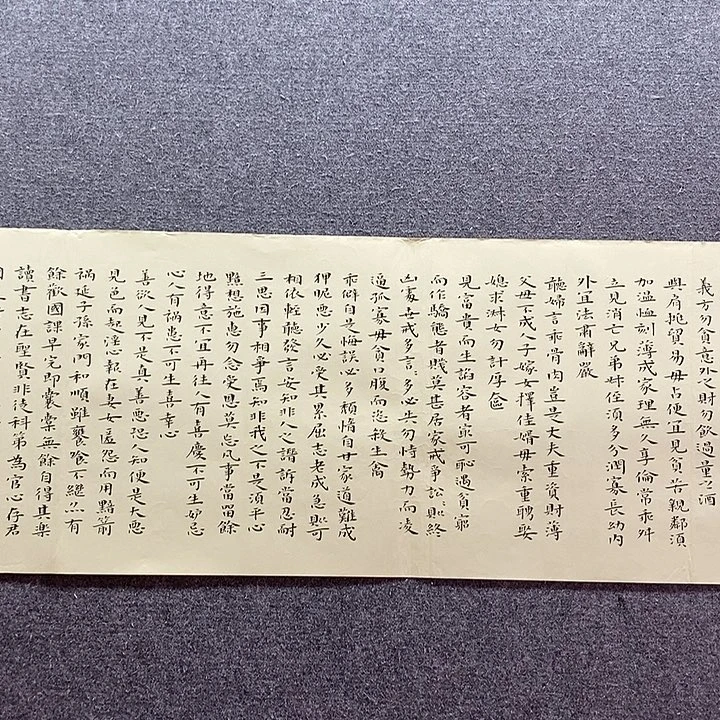 義方勿貪意外之財勿飲過量之酒
與肩挑貿易毋占便宜見貧苦親鄰須
加溫恤刻薄成家理無久享倫常乖舛
立見消亡兄弟叔侄須多分潤寡長幼內
外宜法肅辭嚴
聽婦言乖骨肉豈是大夫重資財薄
父母不成人子嫁女擇佳婿毋索重聘娶
媳求淑女勿計厚奩
見富貴而生諂容者冣可恥遇貧窮
而作驕態者賤莫甚居家戒爭訟〻則終
凶處世戒多言〻多必失勿恃勢力而凌
逼孤寡毋貪口腹而恣殺生禽
乖僻自是悔誤必多頹惰自甘家道難成
狎昵惡少久必受其累屈志老成急則可
相依輕聽發言安知非人之譖訴當忍耐
三思因事相爭焉知非我之不是須平心
黯想施惠勿念受恩莫忘凡事當留餘
地得意不宜再往人有喜慶不可生妒忌
心人有禍患不可生喜幸心
善欲人見不是真善惡恐人知便是大惡
見色而起淫心報在妻女匿怨而用黯箭
禍延子孫家門和順雖饔飧不繼亦有
餘歡國課早完即囊橐無餘自得其樂
讀書志在聖賢非徒科第為官心存君